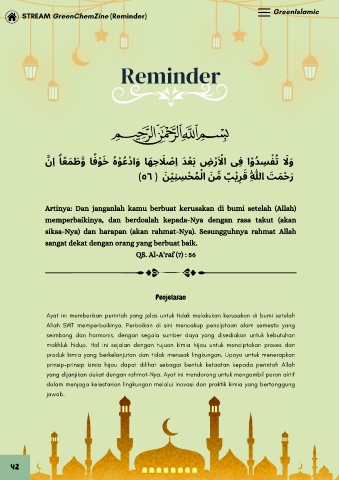 STREAM GreenChemZine (Reminder)
GreenIslamic
Reminder
بِسْمِ اللهِ الرَّحْمٰنِ الرَّحِيْمِ
وَلَا تُفْسِدُوْا فِى الْاَرْضِ بَعْدَ اِصْلَاحِهَا وَادْعُوْهُ خَوْفًا وَّطَمَعًاۗ اِنَّ
رَحْمَتَ اللّٰهِ قَرِيْبٌ مِّنَ الْمُحْسِنِيْنَ (٥٦)
Artinya: Dan janganlah kamu berbuat kerusakan di bumi setelah (Allah)
memperbaikinya, dan berdoalah kepada-Nya dengan rasa takut (akan
siksa-Nya) dan harapan (akan rahmat-Nya). Sesungguhnya rahmat Allah
sangat dekat dengan orang yang berbuat baik.
QS. Al-A'raf (7) : 56
Penjelasan
Ayat ini memberikan perintah yang jelas untuk tidak melakukan kerusakan di bumi setelah
Allah SWT memperbaikinya. Perbaikan di sini mencakup penciptaan alam semesta yang
seimbang dan harmonis, dengan segala sumber daya yang disediakan untuk kebutuhan
makhluk hidup. Hal ini sejalan dengan tujuan kimia hijau untuk menciptakan proses dan
produk kimia yang berkelanjutan dan tidak merusak lingkungan. Upaya untuk menerapkan
prinsip-prinsip kimia hijau dapat dilihat sebagai bentuk ketaatan kepada perintah Allah
yang dijanjikan dekat dengan rahmat-Nya. Ayat ini mendorong untuk mengambil peran aktif
dalam menjaga kelestarian lingkungan melalui inovasi dan praktik kimia yang bertanggung
jawab.
42